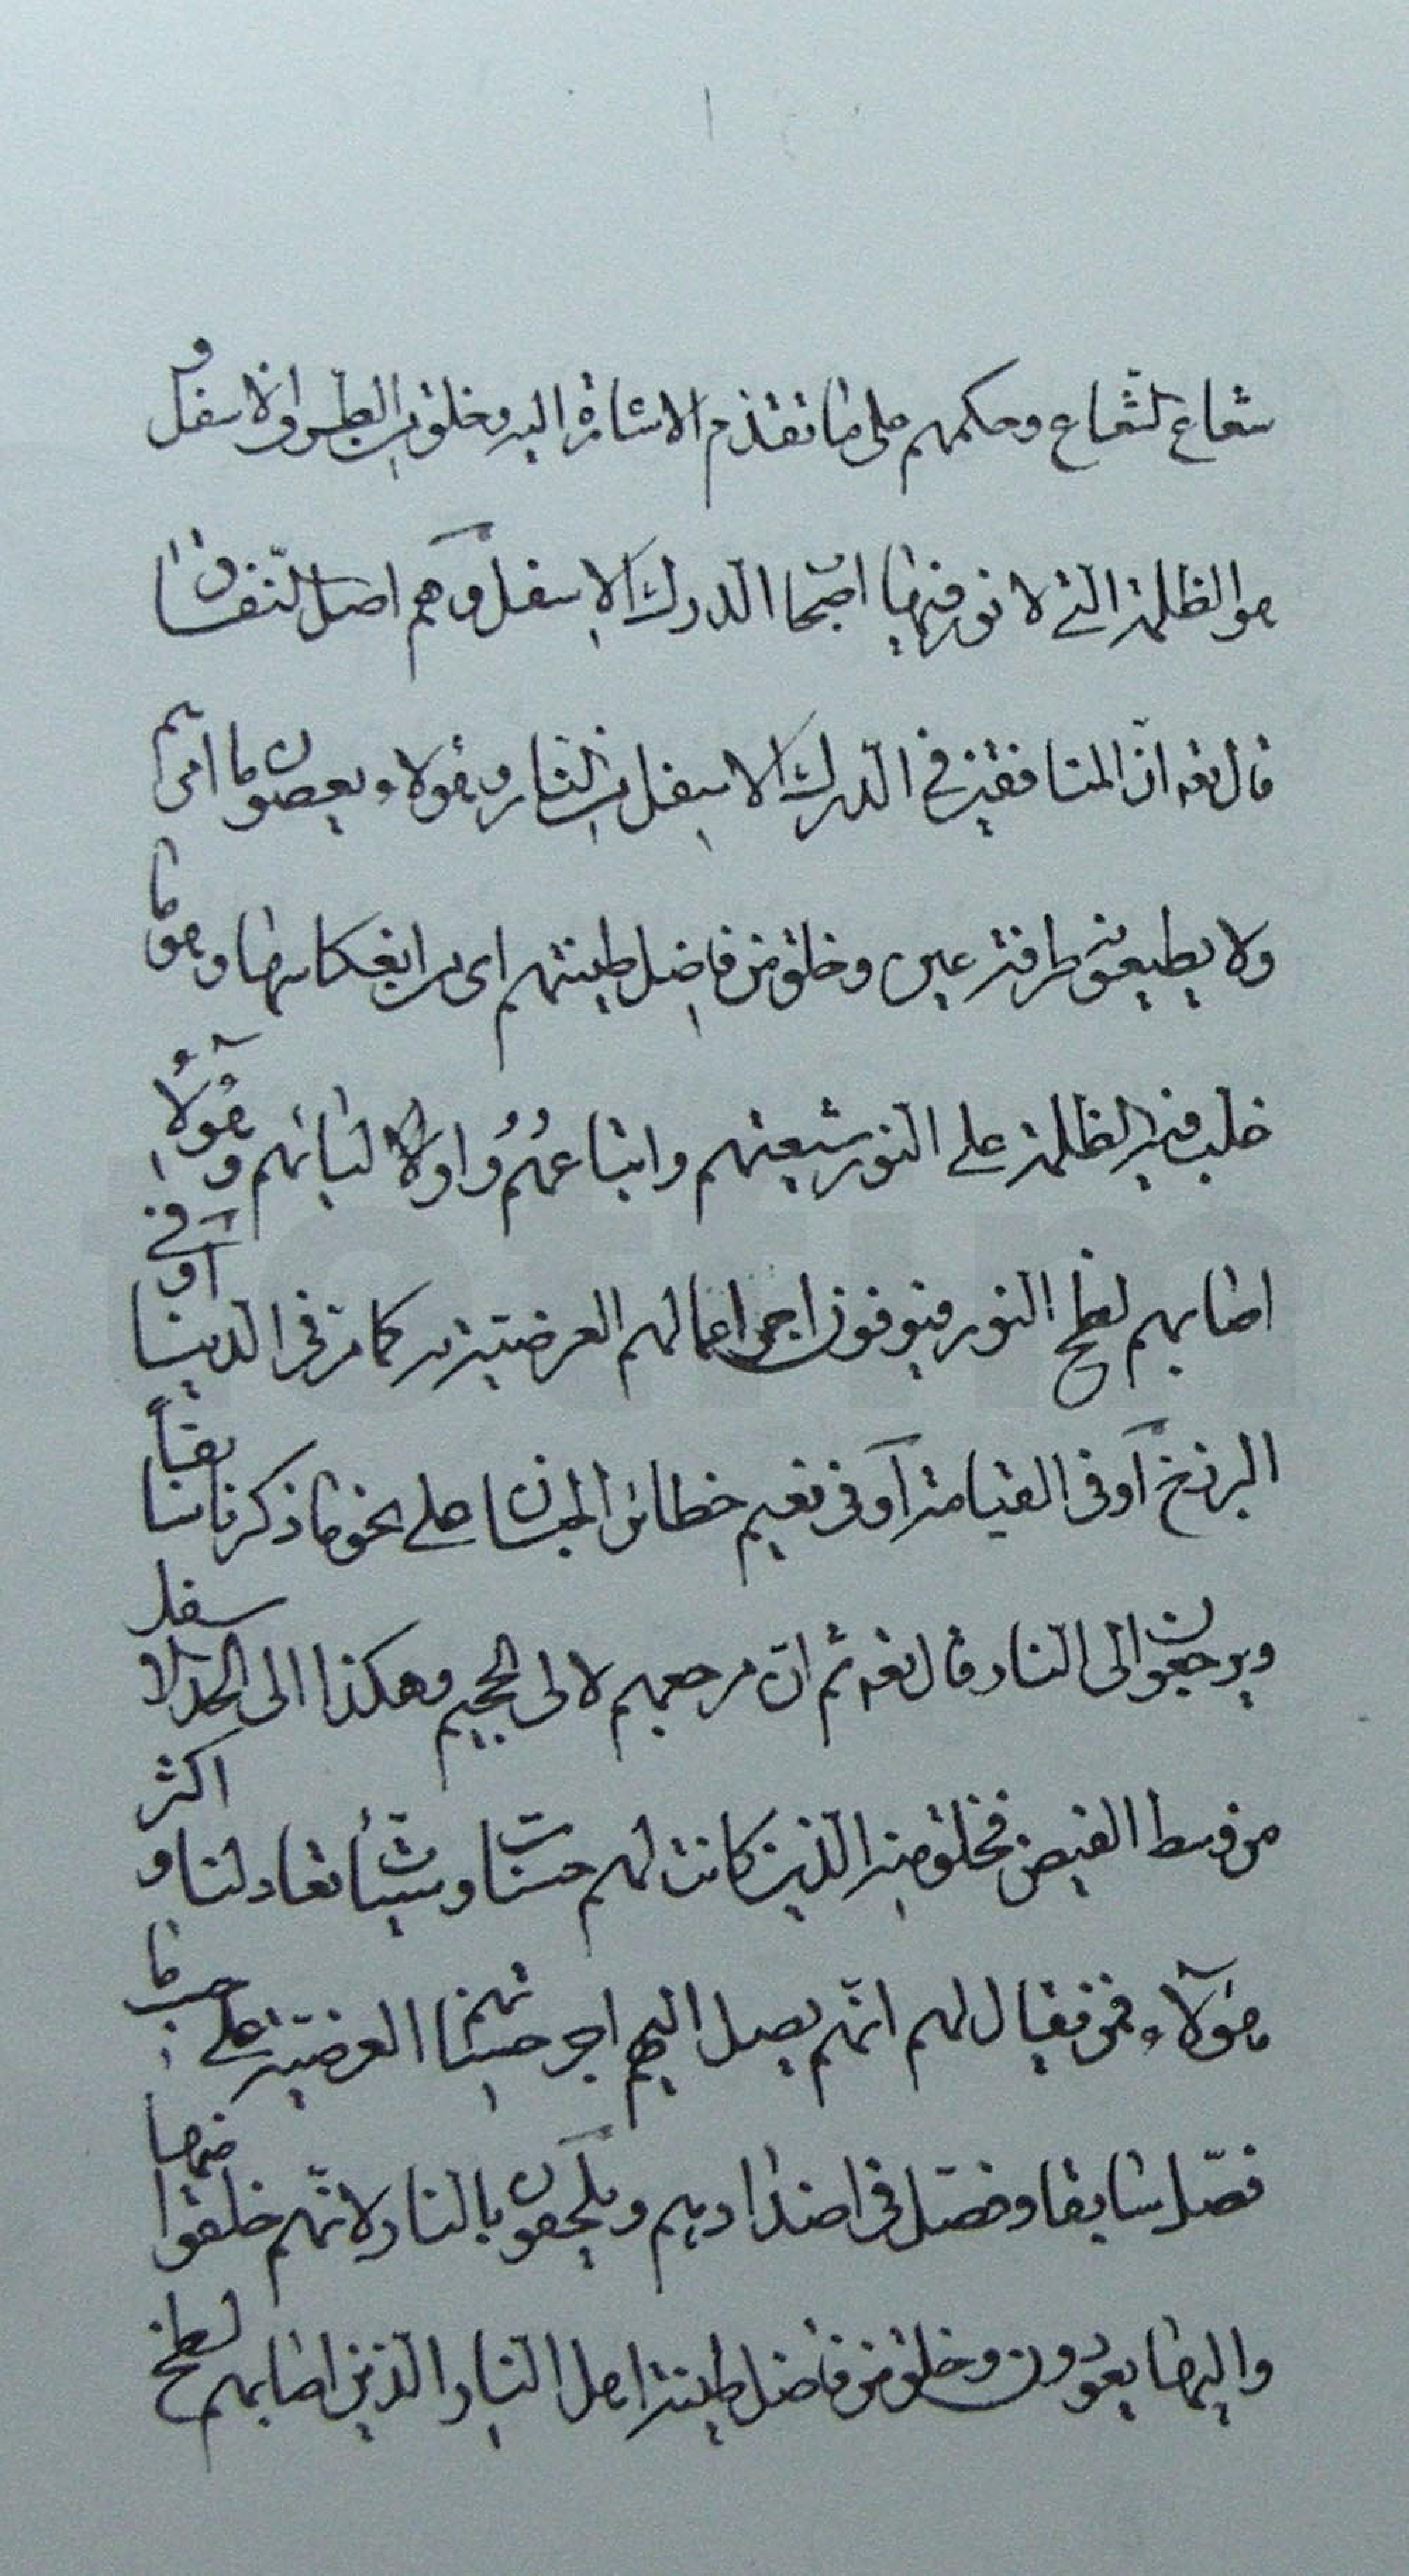 شعاع الشعاع وحكمهم على ما تقدم الاشارة اليه وخلق من الطين الاسفل و
هو الظلمة التى لا نور فيها اصحاب الدرك الاسفل وهم اصل النفاق
قال تعه ان المنافقين فى الدرك الاسفل من النار وهؤلاء يعصون ما امرهم
ولا يطيعون طرفة عين وخلق من فاضل طينتهم اى من انعكاسها وهو ما
غلب فيه الظلمة على النور شيعتهم واتباعهم واولادهم وهؤلاء
اصابهم لطخ النور فيوفون اجر اعمالهم العرضية كما مر فى الدنيا او فى
البرزخ او فى القيامة او فى نعيم حظائر الجنان على نحو ما ذكرنا سابقاً
ويرجعون الى النار قال تعه ثم ان مرجعهم لالى الجحيم وهكذا الى الحد الاسفل
من وسط القبضة فخلق منه الذين كانت لهم حسنات وسيئات تعادلنا و اكثر
هؤلاء يقال لهم انهم يصل اليهم اجر حسناتهم العرضية على حسب ما
فصل سابقا وفصل فى اضدادهم ويلحقون بالنار لانهم خلقوا منها
واليها يعودون وخلق من فاضل طينة اهل النار الذين اصابهم لطخ